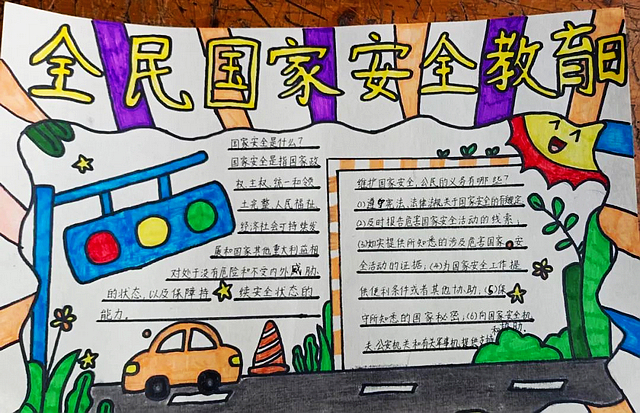 全民国家安全教育日
国家安全是什么？
国家安全是指国家政
权、主权、统一和领
土完整、人民福祉、
经济社会可持续发
展和国家其他重大利益相
对处于没有危险和不受内外威胁
的状态，以及保障持续安全状态的
能力。
维护国家安全，公民的义务有哪些？
(1)遵守宪法、法律法规关于国家安全的有规定
(2)及时报告危害国家安全活动的线索；
(3)如实提供所知悉的涉及危害国家安
全活动的证据；(4)为国家安全工作提
供便利条件或者其他协助；(5)保
守所知悉的国家秘密；(6)向国家安全机
关、公安机关和有关军事机提供支持
和协助.